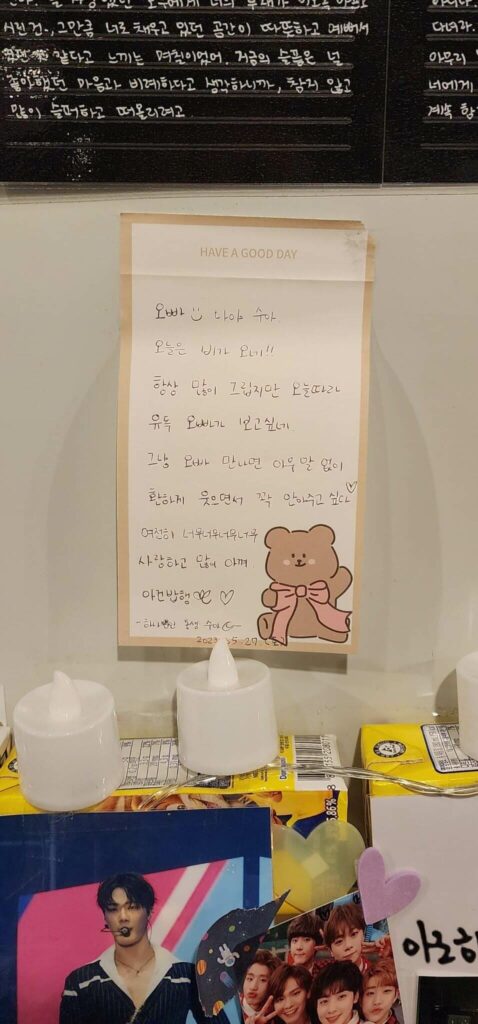 시린건, 그만큼 너로 채우고 있던 공간이 따뜻하고 예뻐서
같다고 느끼는 며칠이었어. 지금의 슬픔은 널
좋아했던 마음과 비례하다고 생각하니까, 참지 않고
많이 슬퍼하고 떠올리려고
단려라.
아무리
너에게
계속
HAVE A GOOD DAY
오빠 나야 수아
오늘은 비가 오네!!
항상 많이 그립지만 오늘따라
유독 오빠가 보고싶네
그냥 오빠 만나면 아무 말 없이
환하게 웃으면서 꽉 안아주고 싶다♡
여전히 너무너무너무너무
사랑하고 많이 아껴
아건밥행 ♡
동생 수아
2023.5.27